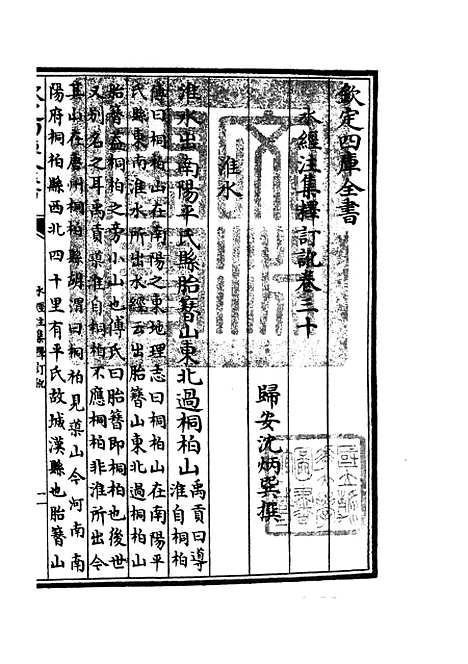 欽定四庫全書
水經注集釋訂訛卷三十
歸安沈炳巽撰
淮水
淮水出南陽平氏縣胎簪山東北過桐柏山
禹貢曰導
淮自桐柏
傳曰桐柏山在南陽之東地理志曰桐柏山在南陽平
氏縣東南淮水所出水經云出胎簪山東北過桐柏山
胎簪蓋桐柏之旁小山也傅氏曰胎簪即桐柏也後世
又別名之耳禹貢導淮自桐柏不應桐柏非淮所出今
其山在唐州桐柏縣胡渭曰桐柏見導山今河南南
陽府桐柏縣西北四十里有平氏故城漢縣也胎簪山
水經注集釋訂訛
一